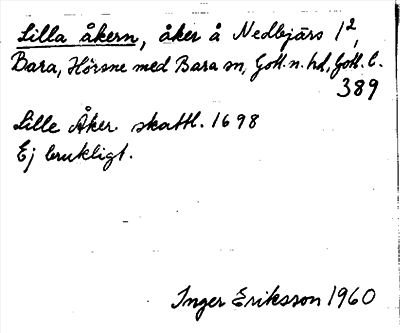 Lilla åkern, åker å Nedbjärs 1²,
Bara, Hörsne med Bara sn, Gotl. n. hd, Gotl. l.
389
Lille Åker skattl. 1698
Ej brukligt.
Inger Eriksson 1960